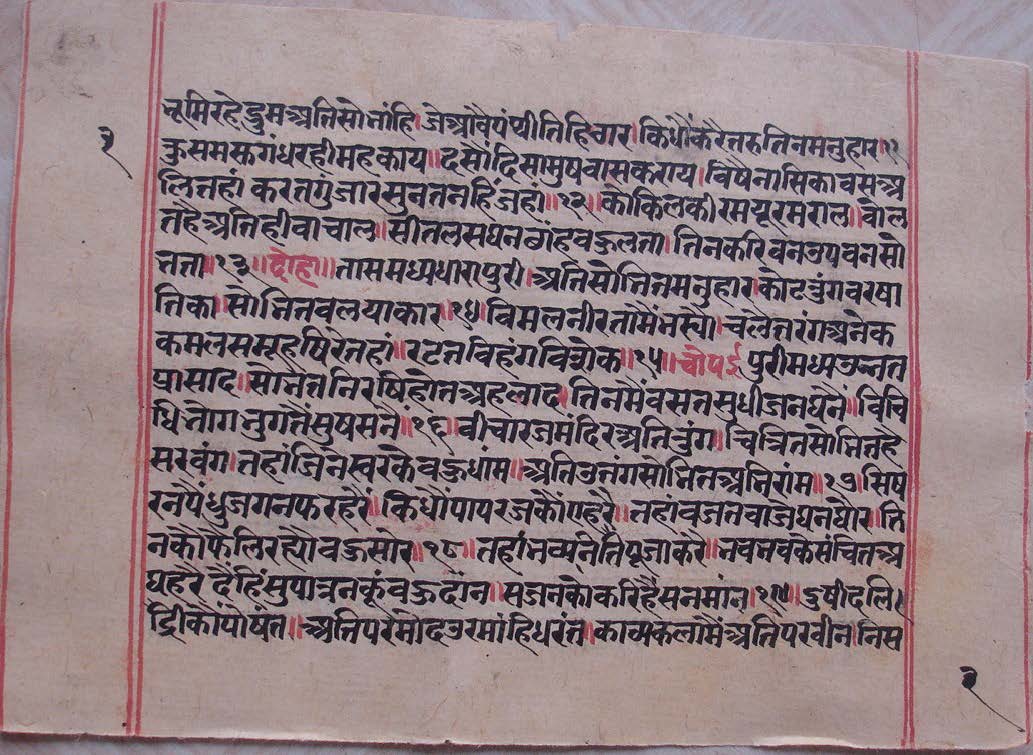 ३
भूमिरहे द्रुमअतिसोभांहि। जेआवैपंथीतिहिवार। किधौंकरैतरुतिनमनुहार॥११
कुसमसुगंधरहीमहकाय॥दसौंदिसामुषवासकराय। विषैनासिकावसअ
लितहां करतगुंजारसुनततनहिंजहां॥१२॥ कोकिलकीरमयूरमराल। बोल
तहैअतिहीवाचाल॥ सीतलसघनछांहबहुलता। तिनकरिवनउपवनसो
भता॥१३॥दोहा॥तासमध्यधारापुरी। अतिसोभितमनुहार।कोटतुंगवरषा
तिका। सोभितवलयाकार॥१४॥विमलनीरतामैंभस्यौ। चलैतरंगअनेक
कमलसमूहषिरेतहां॥रटतविहंगविवेक॥१५॥चौपई पुरीमध्यउन्नत
प्रासाद। सोभैंतनिरषिहोतअहलाद। तिनमैंवसतसुधीजनघनैं॥विचि
धिभोगभुगतैंसुषसनैं॥१६॥वीचारजमंदिरअतितुंग। चित्रितसोभितहै
सरवंग। तहांजिनेस्वरकेवहुधांम॥अतिउतंगसोभितअभिरांम॥१७॥सिष
रनपैंधुजगनफरहरैं। किधौंपापरजकौंपहरै॥तहांवजतवाजेघनघोर। ति
नकौफैलिरह्योवहुसोर॥१८॥ तहांभव्यनितिपूजाकरै॥भवभवकेसंचितअ
घहरै दैंहिंसुपात्रनकूंवहुदांन॥सजनकोकरिहैंसनमांन॥१९॥दुषीदलि
द्रीकौंपोषंत॥ अतिपरमोदउरमांहिधरंत। काव्यकलामैंअतिपरवीन।तिस
३